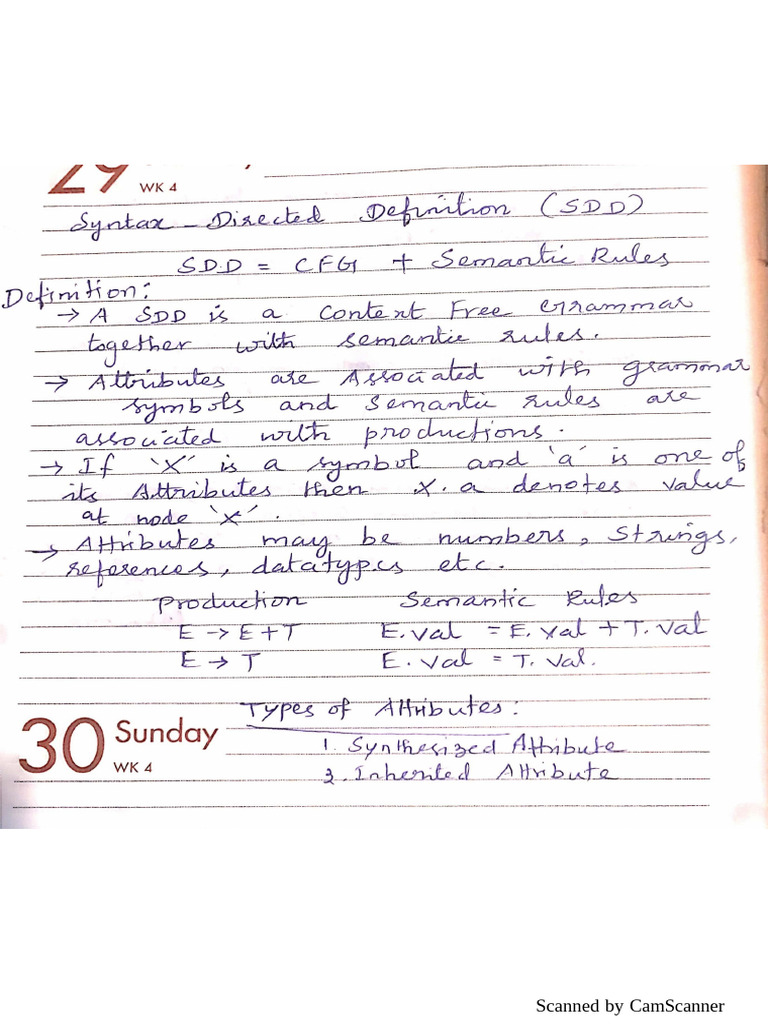 29
WK 4
Syntax - Directed Definition (SDD)
SDD = CFG + Semantic Rules
Definition:
→ A SDD is a Context Free Grammar
together with semantic rules.
→ Attributes are Associated with grammar
symbols and semantic rules are
associated with productions.
→ If 'X' is a symbol and 'a' is one of
its Attributes then X.a denotes value
at node 'X'.
→ Attributes may be numbers, Strings,
references, datatypes etc.
Production Semantic Rules
E → E+T E.val = E.val + T.val
E → T E.val = T.val.
Types of Attributes:
30 Sunday
WK 4
1. Synthesized Attribute
2. Inherited Attribute
Scanned by CamScanner